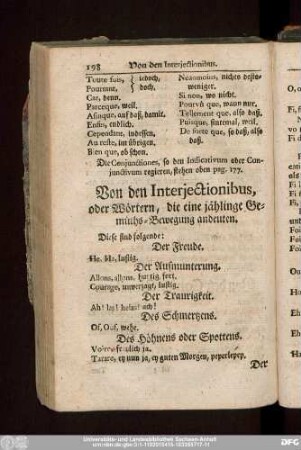 198 Von den Interjectionibus.
Toute fois, jedoch,
Pourtant, doch,
Car, denn.
Parceque, weil.
Afinque, auf daß, damit.
Enfin, endlich.
Cependant, indessen.
Au reste, im übrigen.
Bien que, ob schon.
Neanmoins, nichts desto-
weniger.
Si non, wo nicht.
Pourvû que, wann nur.
Tellement que, also daß.
Puisque, sintemal, weil.
De sorte que, so daß, also
daß.
Die Conjunctiones, so den Indicativum oder Con-
junctivum regieren, stehen oben pag. 177.
Von den Interjectionibus,
oder Wörtern, die eine jählinge Ge-
müths-Bewegung andeuten.
Diese sind folgende:
Der Freude.
Ha. Ha, lustig.
Der Aufmunterung.
Allons, allons, lustig, fort.
Courage, unverzagt, lustig.
Der Traurigkeit.
Ah! las! helas! ach!
Des Schmertzens.
Of, Ouf, wehe.
Des Höhnens oder Spottens.
ja.
Tarare, ey nun ja, ey guten Morgen, peperlepep.
Der
Universitäts- und Landesbibliothek Sachsen-Anhalt
DFG